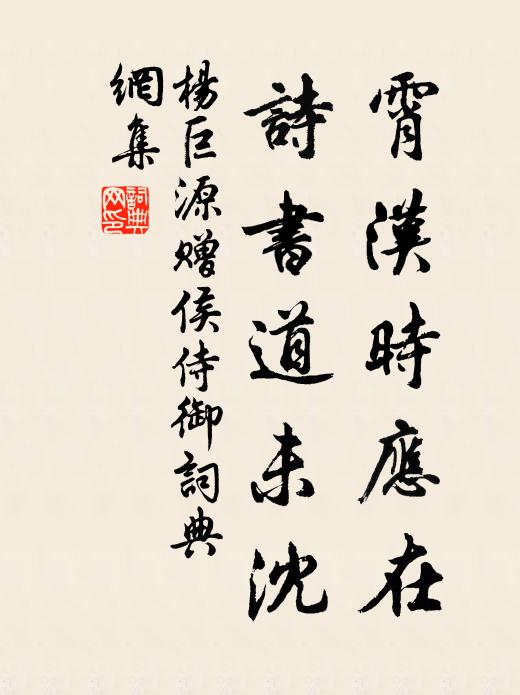 霄漢時應在
詩書道未沈
楊巨源贈侯侍御詞典
網集
詞典
网印